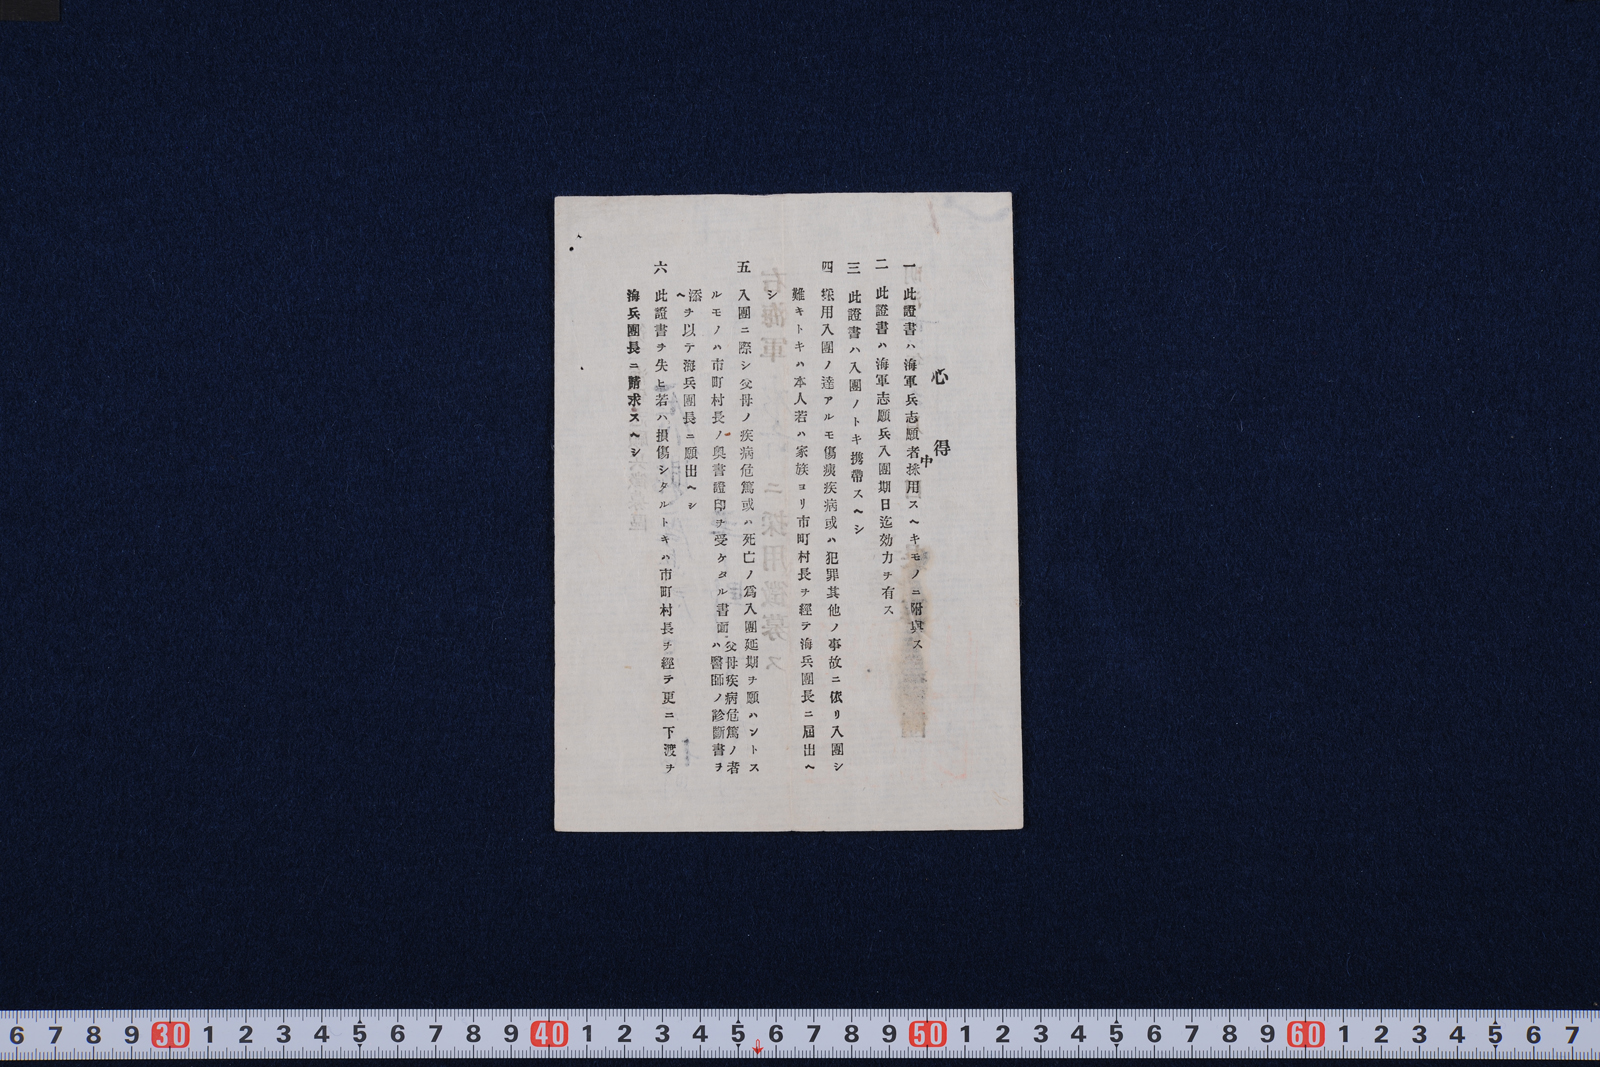 心得
一 此證書ハ海軍兵志願者採用スヘキモノニ附與ス
中
二 此證書ハ海軍志願兵入團期日迄効力チ有ス
三 此證書ハ入團ノトキ携帶スヘシ
四 採用入團ノ達アルモ傷痍疾病或ハ犯罪其他ノ事故ニ依リ入團シ
難キトキハ本人若ハ家族ヨリ市町村長チ經テ海兵團長ニ屆出ヘ
シ
五 入團ニ際シ父母ノ疾病危篤或ハ死亡ノ爲入團延期チ願ハントス
ルモノハ市町村長ノ奥書證印チ受ケタル書面 父母疾病危篤ノ者
ハ醫師ノ診斷書ヲ
添
ヘ チ以テ海兵團長ニ願出ヘシ
六 此證書チ失ヒ若ハ損傷シタルトキハ市町村長チ經テ更ニ下渡チ
海兵團長ニ請求スヘシ
6 7 8 9 30 1 2 3 4 5 6 7 8 9 40 1 2 3 4 5 6 7 8 9 50 1 2 3 4 5 6 7 8 9 60 1 2 3 4 5 6 7